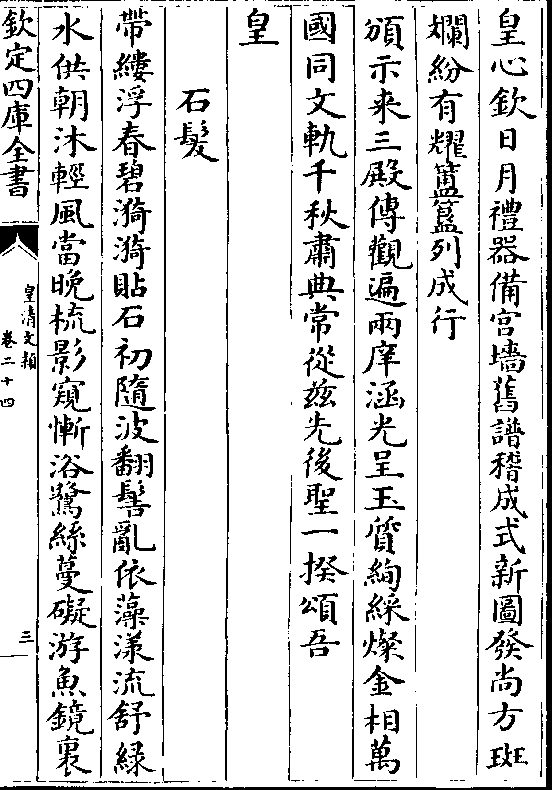 皇心欽日月禮器備宮墻舊譜稽成式新圖發尚方斑
斕紛有耀簠簋列成行
頒示来三殿傳觀遍兩庠涵光呈玉質絢綵燦金相萬
國同文軌千秋肅典常從兹先後聖一揆頌吾
皇
石髮
帶縷浮春碧漪漪貼石初隨波翻髻亂依藻漾流舒緑
水供朝沐輕風當晩梳影窺慚浴鷺絲蔓礙游魚鏡裏
欽定四庫全書
皇清文穎
卷二十四
三